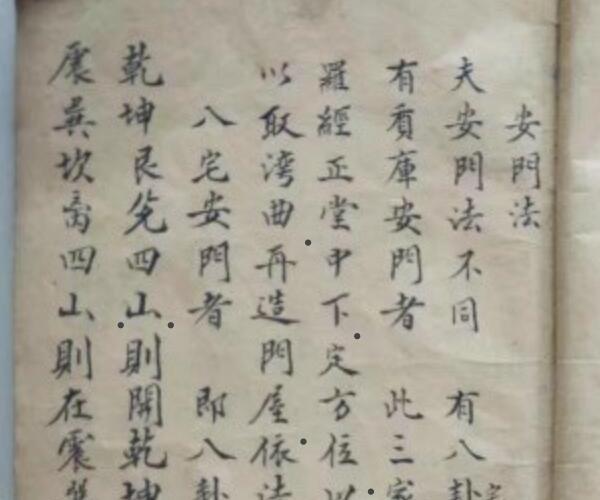 安門法
夫安門法不同 有八卦
有庫安門者 此三家
羅經正堂中下定方位以
以取湾曲再造門屋依法
八宅安門者 即八卦
乾坤艮兌四山則開乾坤
震巽坎离四山則在震巽